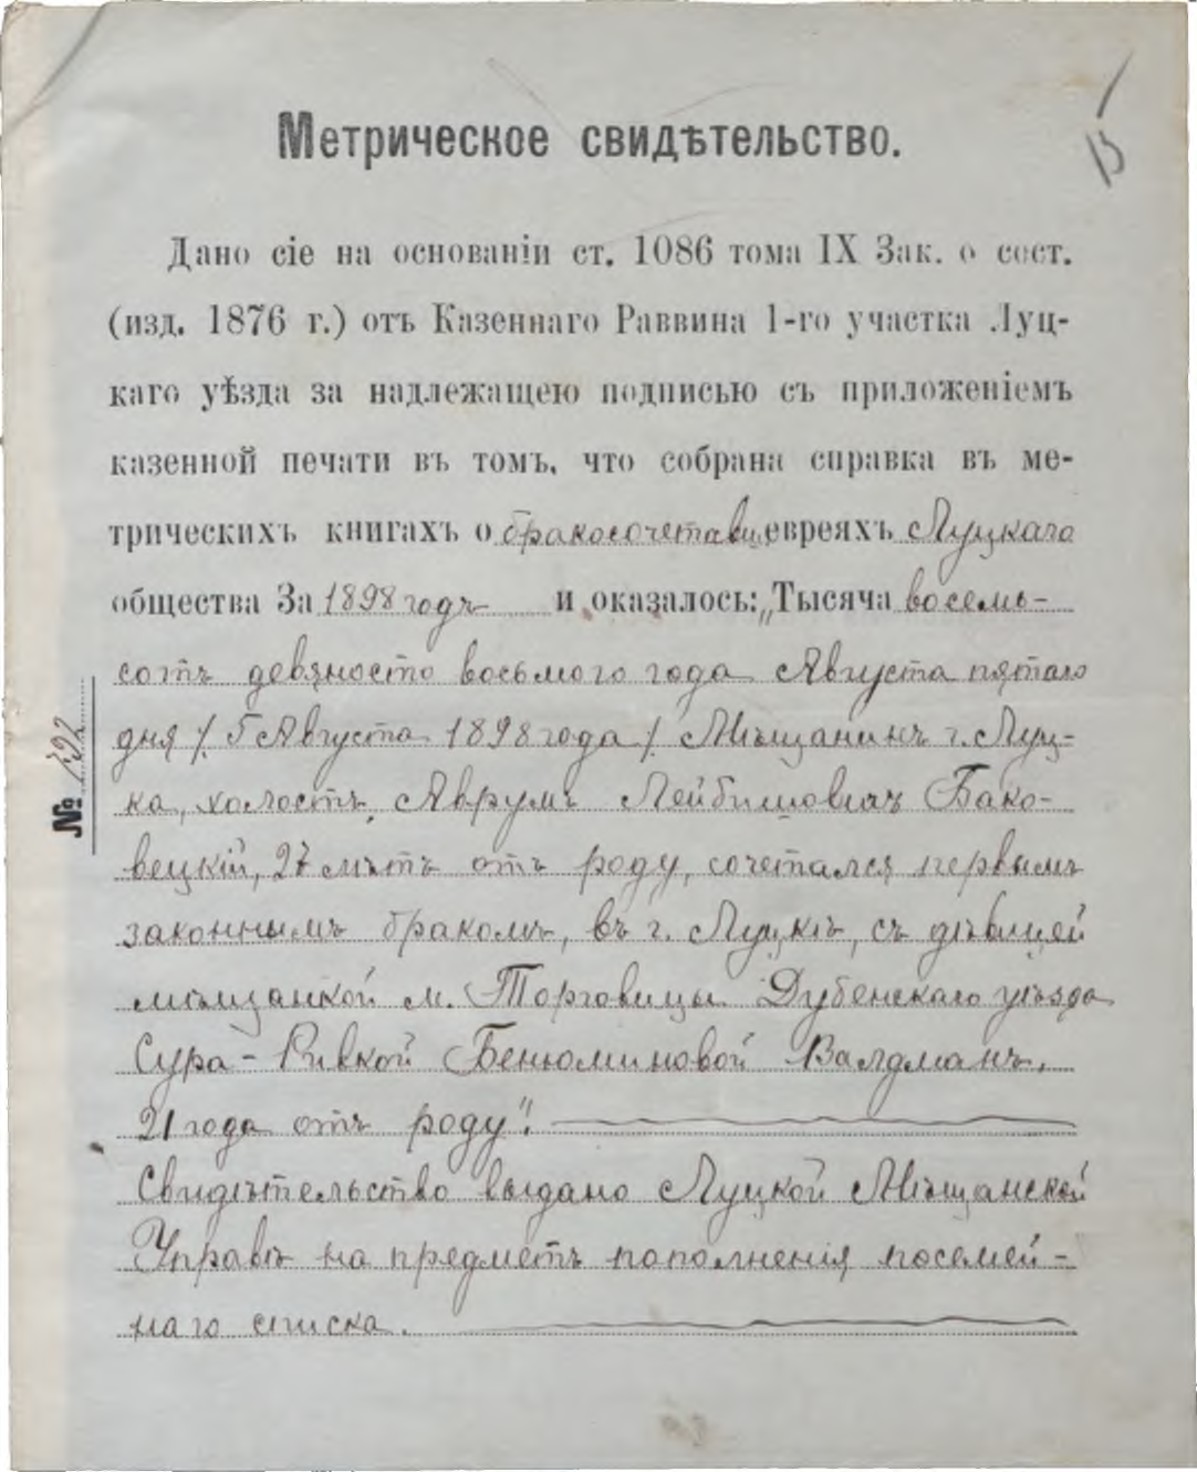 Метрическое свидѣтельство.
Дано сіе на основаніи ст. 1086 тома IX Зак. о сост.
(изд. 1876 г.) отъ Казеннаго Раввина 1-го участка Луц-
каго уѣзда за надлежащею подписью съ приложеніемъ
казенной печати въ томъ, что собрана справка въ ме-
трическихъ книгахъ о бракосочетавш. евреяхъ Луцкаго
общества За 1898 годъ и оказалось: „Тысяча восемь-
сотъ девяносто восьмого года Августа пятаго
дня /5 Августа 1898 года/ Мѣщанинъ г. Луц-
ка, холостъ, Аврумъ Лейбишовичъ Бако-
вецкій, 27 лѣтъ отъ роду, сочетался первымъ
законнымъ бракомъ, въ г. Луцкѣ, съ дѣвицей
мѣщанкой м. Торговицы Дубенскаго уѣзда
Сура-Ривкой Бенюминовой Валдманъ,
21 года отъ роду".
Свидѣтельство выдано Луцкой Мѣщанской
Управѣ на предметъ пополненія посемей-
наго списка.
№